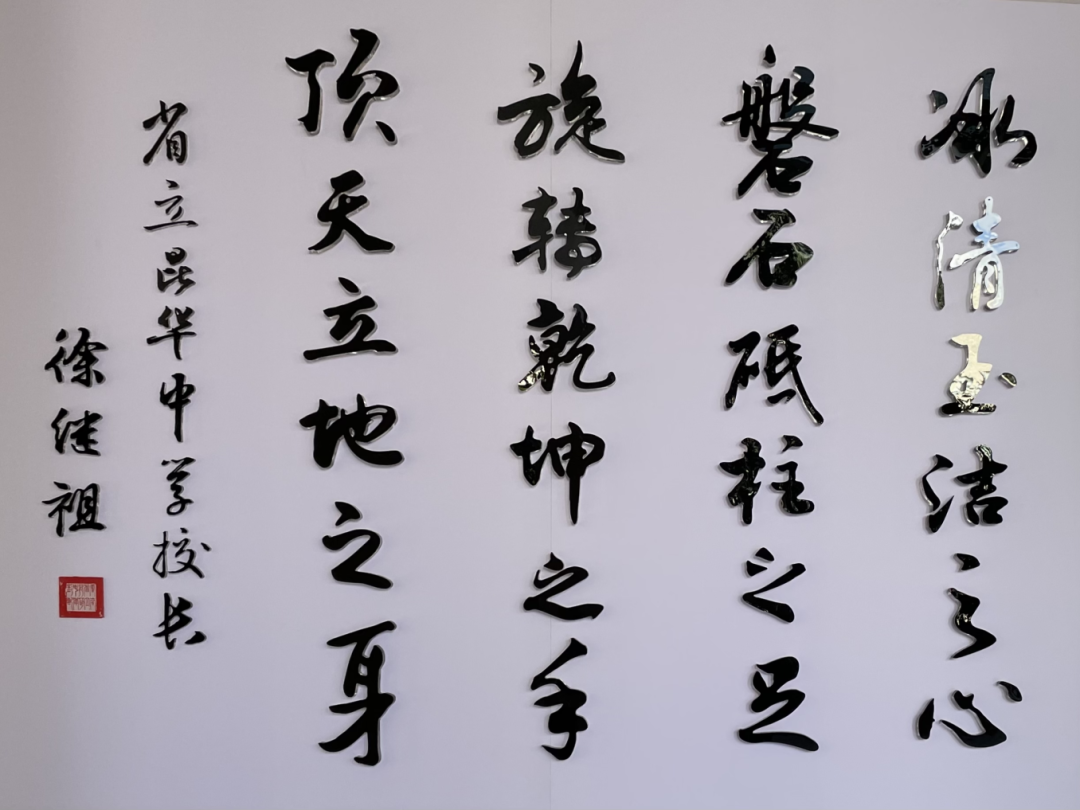 冰清玉洁之心
磐石砥柱之足
旋转乾坤之手
顶天立地之身
省立昆华中学校长
徐继祖